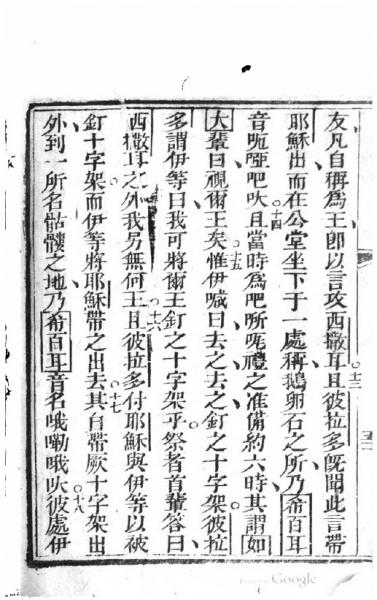 友凡自稱爲王卽以言攻西撒耳且彼拉多旣聞此言帶
耶穌出而在公堂坐下于一處稱鵝卵石之所乃希百耳
音呃啞吧吠且當時爲吧所呢禮之准備約六時其謂如
大輩曰視爾王矣惟伊喊曰去之去之釘之十字架彼拉
多謂伊等曰我可將爾王釘之十字架乎祭者首輩答曰
西撒耳之外我另無何王且彼拉多付耶穌與伊等以被
釘十字架而伊等將耶穌帶之出去其自帶厥十字架出
外到一所名骷髏之地乃希百耳音名哦嘞哦吠彼處伊
十三
十四
十五
十六
十七
十八
Google